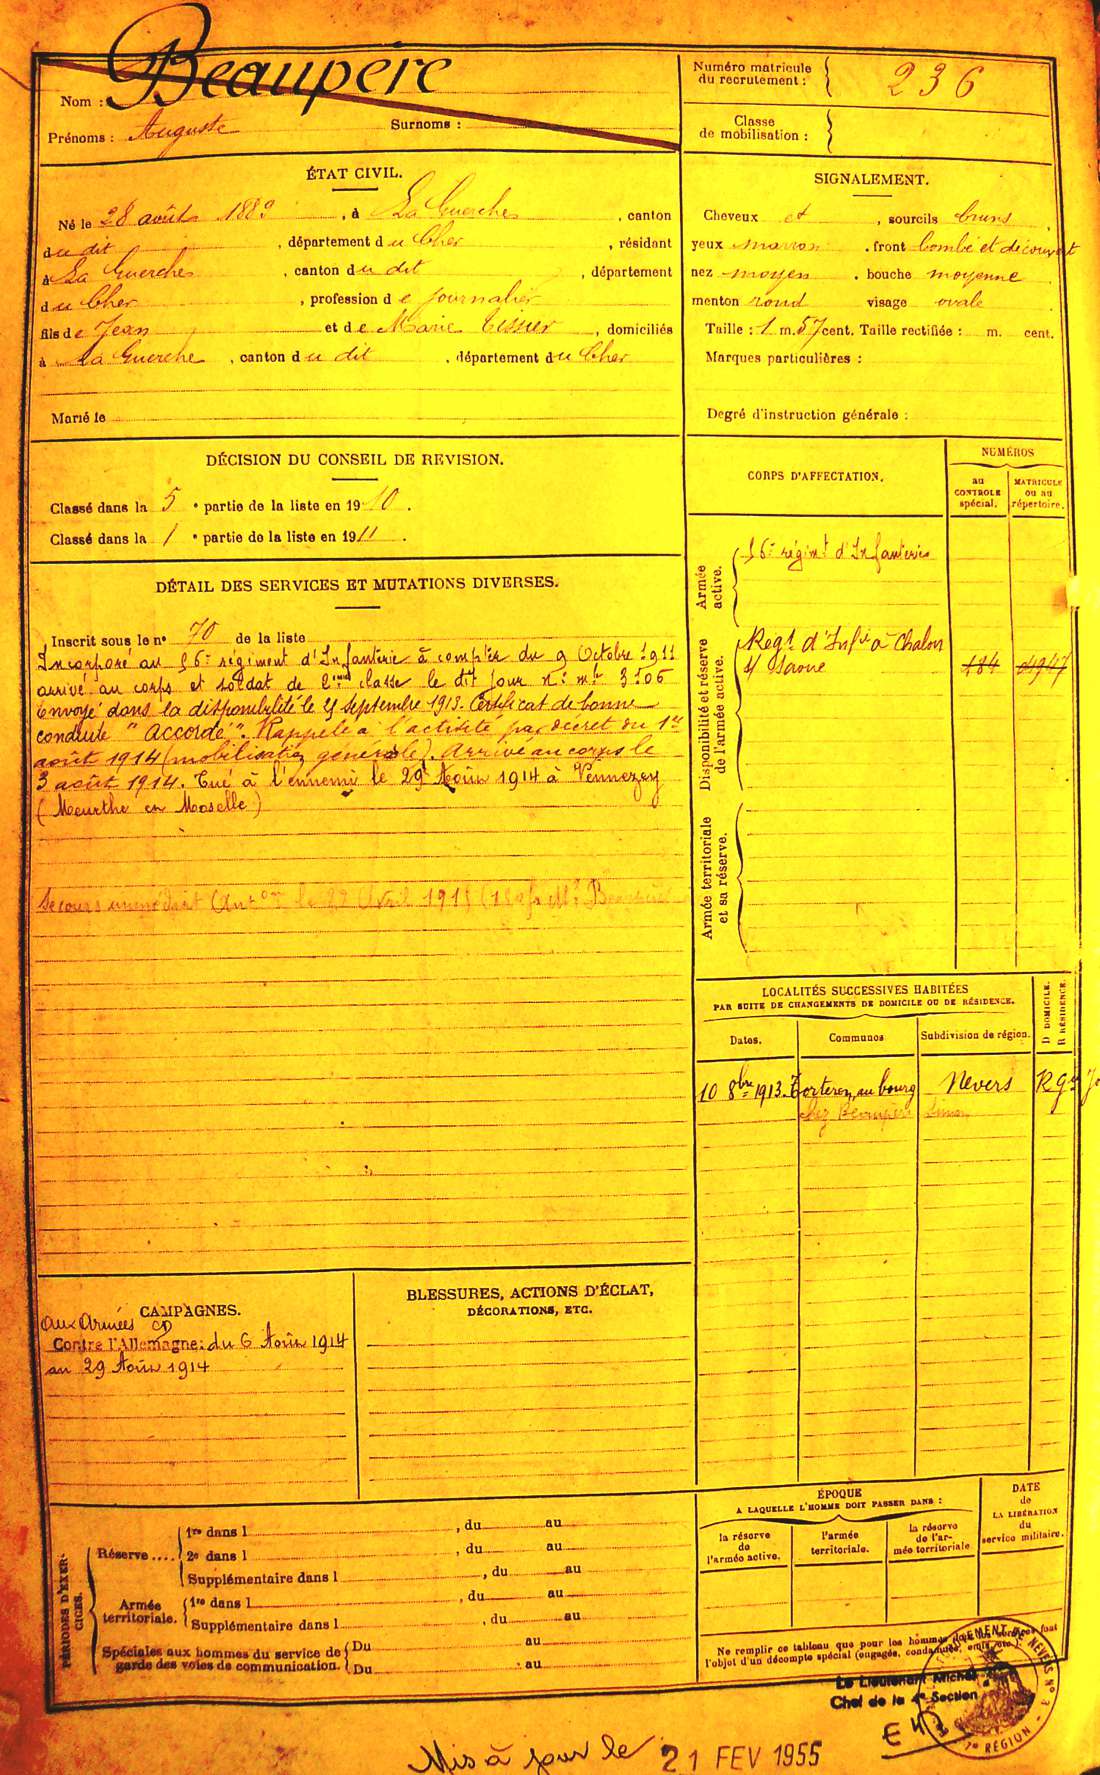 Nom : Beaupère
Prénoms : Auguste Surnoms :
Numéro matricule du recrutement : 236
Classe de mobilisation :
ÉTAT CIVIL.
Né le 28 août 188 , à La Guerche , canton
du dit , département du Cher , résidant
à La Guerche , canton du dit , département
du Cher , profession de journalier
fils de Jean et de Marie Tissier , domiciliés
à La Guerche , canton du dit , département du Cher
Marié le
SIGNALEMENT.
Cheveux et , sourcils bruns
yeux marron , front bombé et découvert
nez moyen , bouche moyenne
menton rond visage ovale
Taille : 1 m. 57 cent. Taille rectifiée : m. cent.
Marques particulières :
Degré d'instruction générale :
DÉCISION DU CONSEIL DE REVISION.
Classé dans la 5 e partie de la liste en 1910 .
Classé dans la 1 e partie de la liste en 1911 .
DÉTAIL DES SERVICES ET MUTATIONS DIVERSES.
Inscrit sous le n° 70 de la liste
Incorporé au 56e régiment d'Infanterie à compter du 9 Octobre 1911
arrivé au corps et soldat de 2ème classe le dit jour n° mle 3106
Envoyé dans la disponibilité le septembre 1913. Certificat de bonne
conduite "Accordé". Rappelé à l'activité par décret du 1er
août 1914 (mobilisation générale). Arrivé au corps le
3 août 1914. Tué à l'ennemi le 29 Août 1914 à Vennezey
(Meurthe et Moselle)
Secours immédiat le 22 Avril 1915 (150f Me Beaupère
CORPS D'AFFECTATION.
NUMÉROS
au CONTROLE spécial.
MATRICULE ou au répertoire.
Armée active.
56e régimt d'Infanterie
Disponibilité et réserve de l'armée active.
Regt d'Infie à Chalon
s/ Saone 184 01947
Armée territoriale et sa réserve.
LOCALITÉS SUCCESSIVES HABITÉES
PAR SUITE DE CHANGEMENTS DE DOMICILE OU DE RÉSIDENCE.
D DOMICILE.
R RÉSIDENCE.
Dates. Communes Subdivision de région.
10 8bre 1913. Torteron, au bourg Nevers R
chez Beaupère
CAMPAGNES.
Aux Armées CD
Contre l'Allemagne: du 6 Août 1914
au 29 Août 1914
BLESSURES, ACTIONS D'ÉCLAT,
DÉCORATIONS, ETC.
PÉRIODES D'EXERCICES.
Réserve ....
1re dans l , du au
2e dans l , du au
Supplémentaire dans l , du au
Armée territoriale.
1re dans l , du au
Supplémentaire dans l , du au
Spéciales aux hommes du service de garde des voies de communication.
Du au
Du au
ÉPOQUE
A LAQUELLE L'HOMME DOIT PASSER DANS :
la réserve de l'armée active.
l'armée territoriale.
la réserve de l'armée territoriale
DATE de LA LIBÉRATION du service militaire.
Ne remplir ce tableau que pour les hommes dont les services font
l'objet d'un décompte spécial (engagés, condamnés, omis, etc.).
Le Lieutenant Michel
Chef de la 4e Section
NEVERS N° 3
7e RÉGION
Mis à jour le 21 FEV 1955